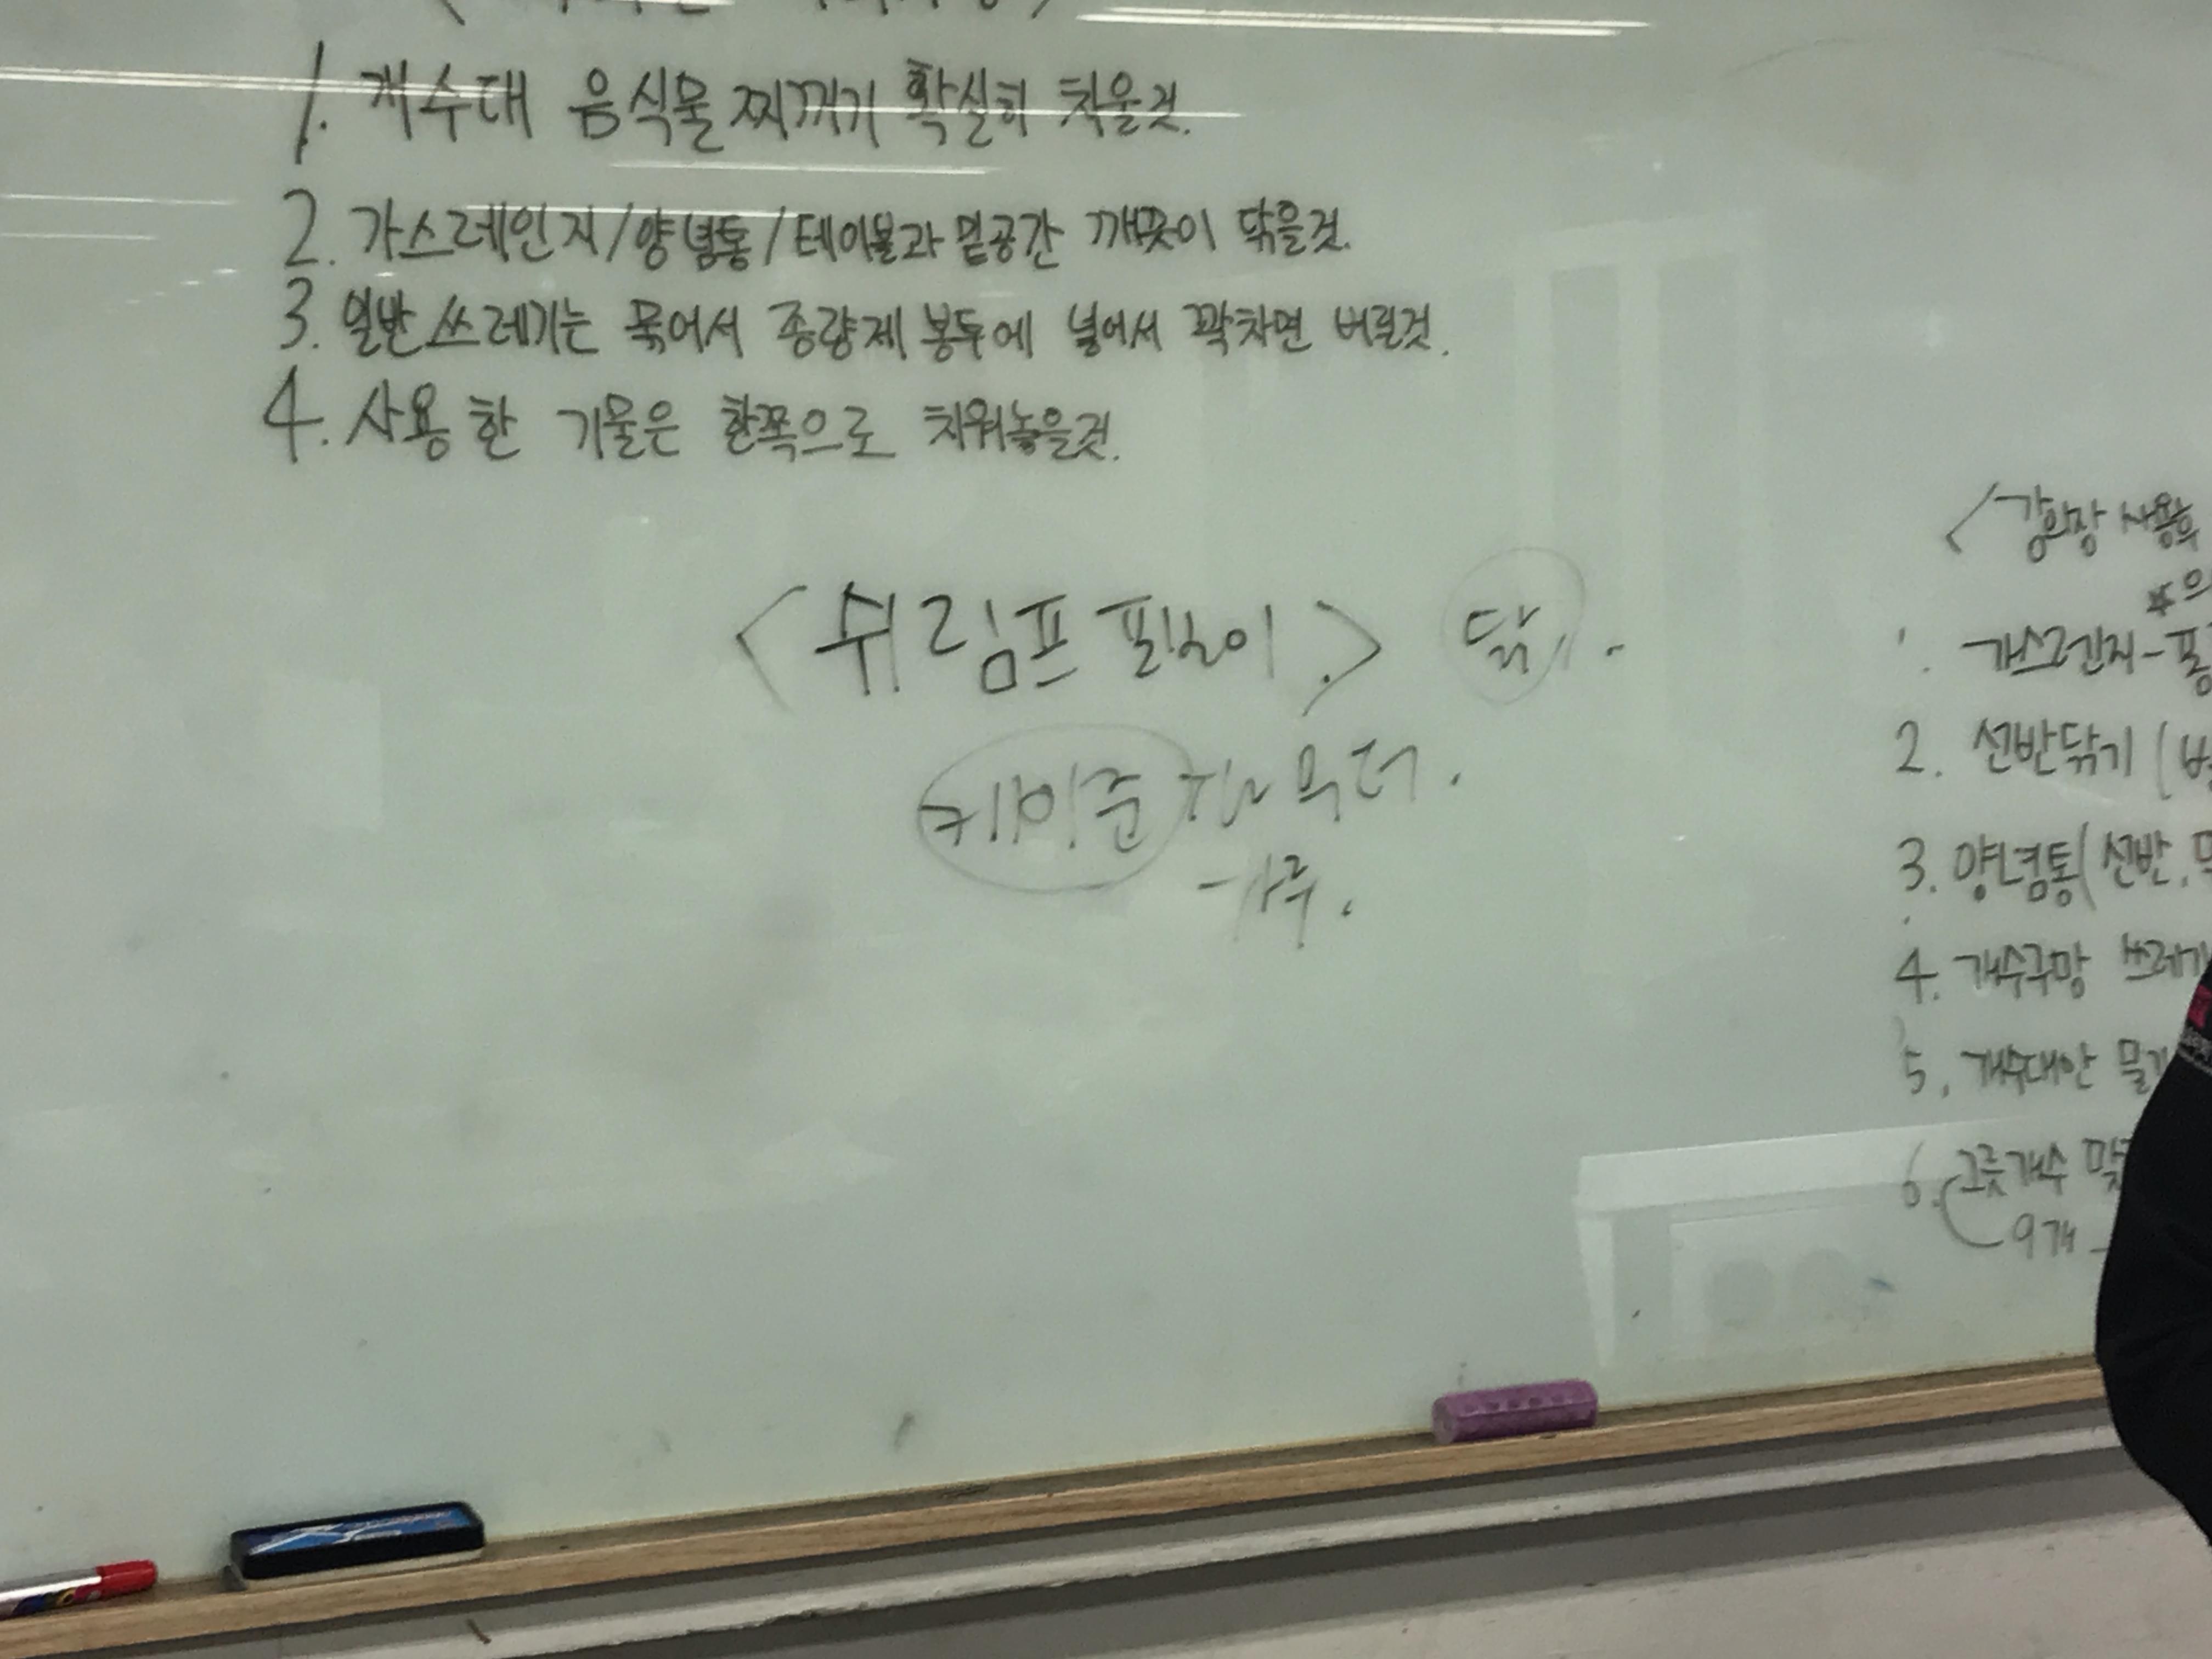 1. 개수대 음식물 찌꺼기 확실히 치울것.
2. 가스레인지/양념통/테이블과 밑공간 깨끗이 닦을것.
3. 일반쓰레기는 묶어서 종량제 봉투에 넣어서 꽉차면 버릴것.
4. 사용한 기물은 한쪽으로 치워놓을것.
<쉬림프 필라이.> 닭.
케이준
가루.
<강의장 사용후
*의
가스렌지-
2. 선반닦기 (
3. 양념통(선반,
4. 개수구망 쓰레기
5. 개수대안 물기
6. 그릇개수 맞
9개